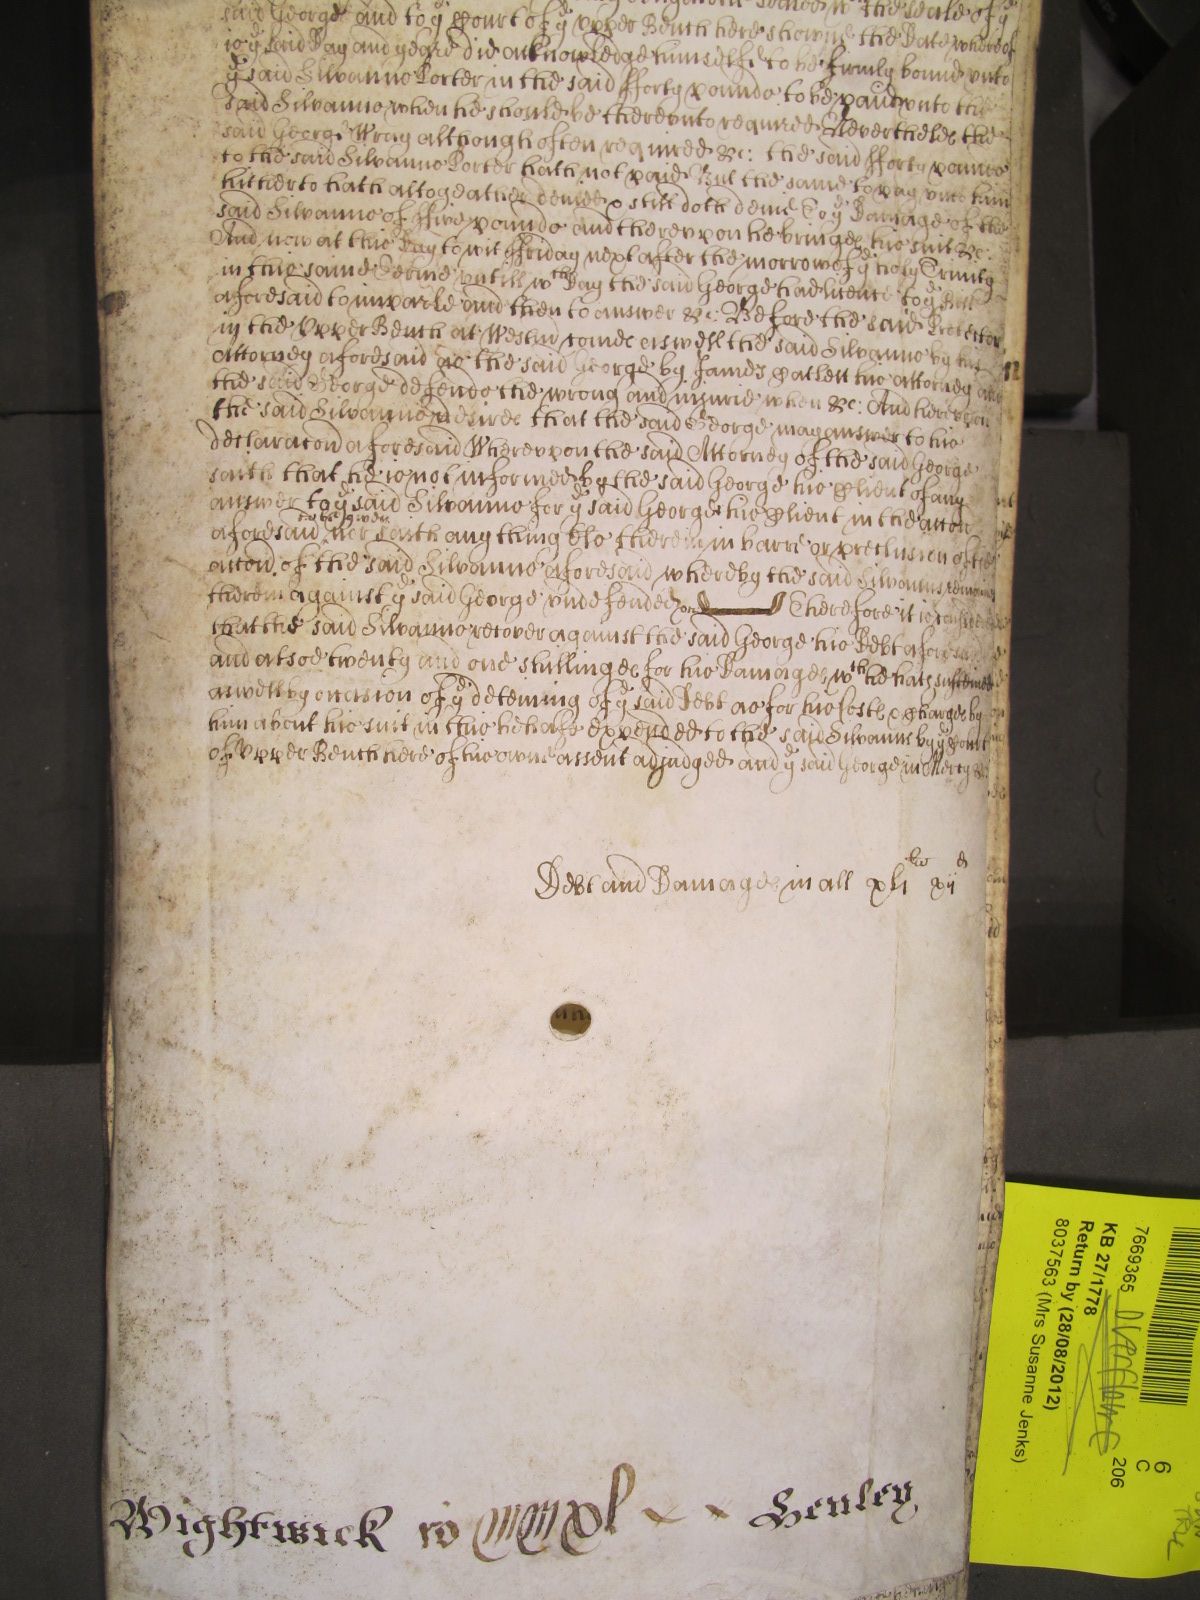 said George and to yͤ Court of yͤ Upper Bench here showne the Date whereof
is yͤ said Day and yeare did acknowledge himselfe to be firmly bound unto
yͤ said Silvanus Porter in the said fforty pounds to be paid unto the
said Silvanus when he should be thereunto required Neverthelesse the
said George Wray although often required &c: the said fforty pounds
to the said Silvanus Porter hath not paid But the same to pay unto him
hitherto hath altogeather denied & still doth denie To yͤ Damage of the
said Silvanus of ffive pounds and thereupon he bringes his suit &c:
And now at this Day to wit ffriday next after the morrow of yͤ holy Trinity
in this same Terme untill wᶜʰ Day the said George had licence to yͤ Bill
aforesaid to imparle and then to answer &c: Before the said Protector
in the Upper Bench at Westmʳ comes aswell the said Silvanus by his
Attorney aforesaid as the said George by James Hallett his attorney and
the said George defends the wrong and injurie when &c: And hereupon
the said Silvanus desires that the said George may answer to his
declaracon aforesaid Whereupon the said Attorney of the said George
saith that he is not informed by the said George his Client of any
answer to yͤ said Silvanus for yͤ said George his Client in the accon
aforesaid to be given nor saith any thing els therein in barre or preclusion of the
accon of the said Silvanus aforesaid whereby the said Silvanus remaines
therein against yͤ said George undefended Therefore it is considered
that the said Silvanus recover against the said George his Debt aforesaid
and alsoe twenty and one shillinges for his Damages wᶜʰ he hath susteined
aswell by occasion of yͤ deteining of yͤ said Debt as for his Costs & Charges by
him about his suit in this behalfe expended to the said Silvanus by yͤ Court
of Upper Bench here of his owne assent adjudged and yͤ said George in Mercy &c:
Debt and Damages in all xliˡⁱ xijᵈ
Wightwick ro xl Henley
7669365
KB 27/1778
Return by (28/08/2012)
8037563 (Mrs Susanne Jenks)
6
C
206